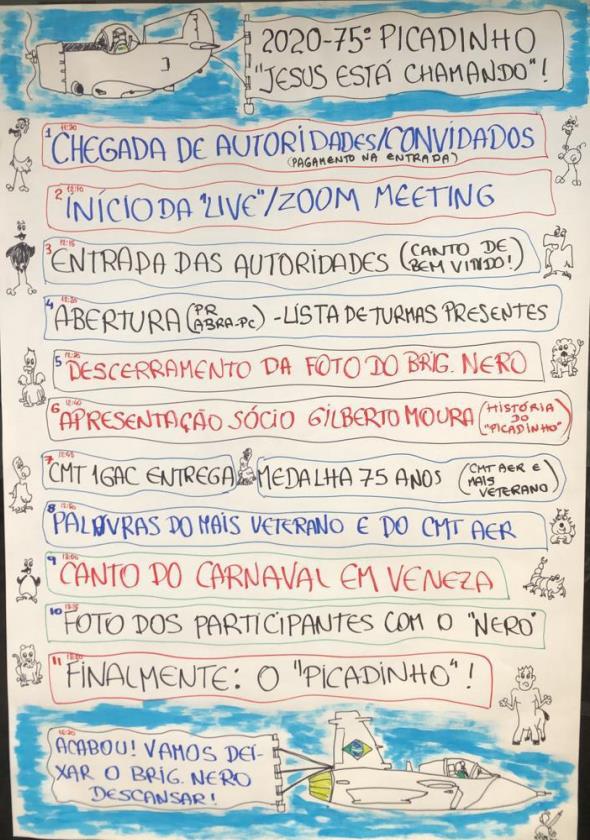 2020-75º PICADINHO
"JESUS ESTÁ CHAMANDO"!
1 CHEGADA DE AUTORIDADES/CONVIDADOS
(PAGAMENTO NA ENTRADA)
2 12:10
INÍCIO DA "LIVE"/ZOOM MEETING
3 12:15
ENTRADA DAS AUTORIDADES (CANTO DE
BEM VINDO!)
4 12:20
ABERTURA (PR
ABRA-PC) - LISTA DE TURMAS PRESENTES
5
DESCERRAMENTO DA FOTO DO BRIG. NERO
6 12:40
APRESENTAÇÃO SÓCIO GILBERTO MOURA (HISTÓRIA
DO
"PICADINHO")
7
CMT 1GAC ENTREGA MEDALHA 75 ANOS (CMT AER E
MAIS
VETERANO)
8 12:50
PALAVRAS DO MAIS VETERANO E DO CMT AER
9
CANTO DO CARNAVAL EM VENEZA
10
FOTO DOS PARTICIPANTES COM O "NERO"
11
FINALMENTE: O "PICADINHO"!
ACABOU! VAMOS DEI-
XAR O BRIG. NERO
DESCANSAR!